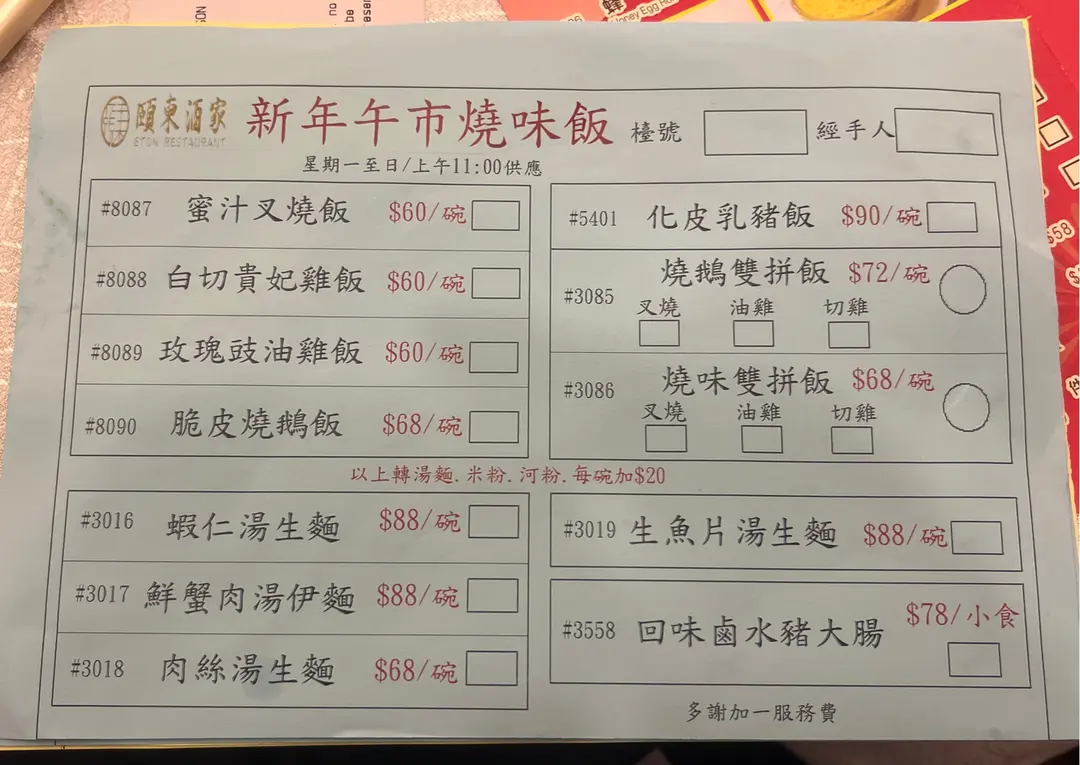 頤東酒家
ETON RESTAURANT
新年午市燒味飯
檯號
經手人
星期一至日/上午11:00供應
#8087 蜜汁叉燒飯 $60/碗
#8088 白切貴妃雞飯 $60/碗
#8089 玫瑰豉油雞飯 $60/碗
#8090 脆皮燒鵝飯 $68/碗
#5401 化皮乳豬飯 $90/碗
#3085 燒鵝雙拼飯 $72/碗
叉燒 油雞 切雞
#3086 燒味雙拼飯 $68/碗
叉燒 油雞 切雞
以上轉湯麵.米粉.河粉.每碗加$20
#3016 蝦仁湯生麵 $88/碗
#3017 鮮蟹肉湯伊麵 $88/碗
#3018 肉絲湯生麵 $68/碗
#3019 生魚片湯生麵 $88/碗
#3558 回味鹵水豬大腸 $78/小食
多謝加一服務費
$58